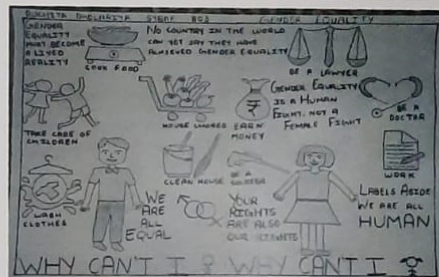 GENDER EQUALITY
GENDER
EQUALITY
MUST BECOME
A LIVED
REALITY
NO COUNTRY IN THE WORLD
CAN YET SAY THEY HAVE
ACHIEVED GENDER EQUALITY
COOK FOOD
BE A LAWYER
GENDER EQUALITY
IS A HUMAN
FIGHT, NOT A
FEMALE FIGHT
BE A
DOCTOR
TAKE CARE OF
CHILDREN
HOUSE CHORES
EARN
MONEY
CLEAN HOUSE
BE A
WORK
WASH
CLOTHES
WE
ARE
ALL
EQUAL
YOUR
RIGHTS
ARE ALSO
OUR RIGHTS
LABELS ASIDE
WE ARE ALL
HUMAN
WHY CAN'T I WHY CAN'T I